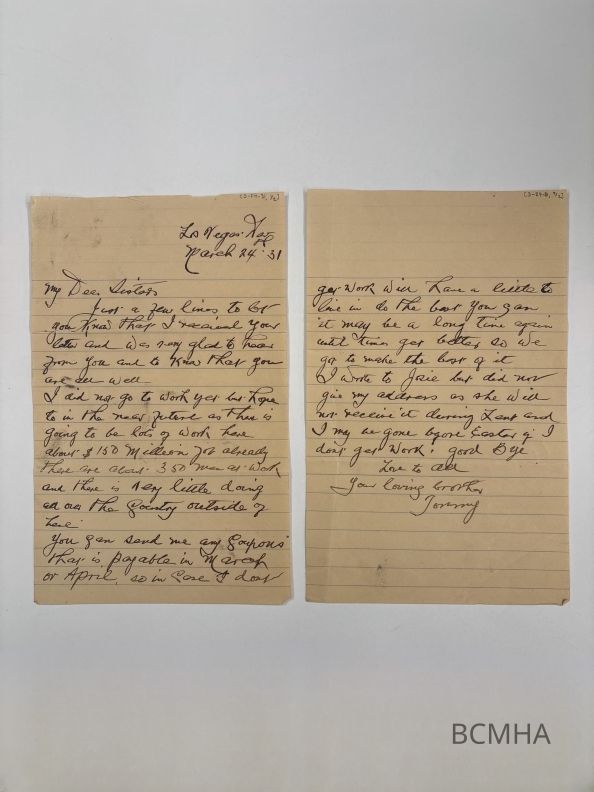 (3-24-31, 1/2)
Los Vegas Nev
March 24 - 31
My Dear Sisters
Just a few lines to let
you Know that I received your
letter and was very glad to hear
from you and to Know that you
are all well
I did not go to work yet but hope
to in the near future as there is
going to be lots of work here
about $150 Million Job already
there are about 350 men at work
and there is very little doing
all over the Country outside of
here
You can send me any Coupons
that is payable in March
or April, so in Case I dont
(3-24-31, 2/2)
get work will have a little to
live on do the best you can
it may be a long time again
until times get better so we
got to make the best of it
I wrote to Josie but did not
give my address as she will
not receive it during Lent and
I may be gone before Easter if I
don't get work! good Bye
Love to all
Your loving brother
Tommy
BCMHA